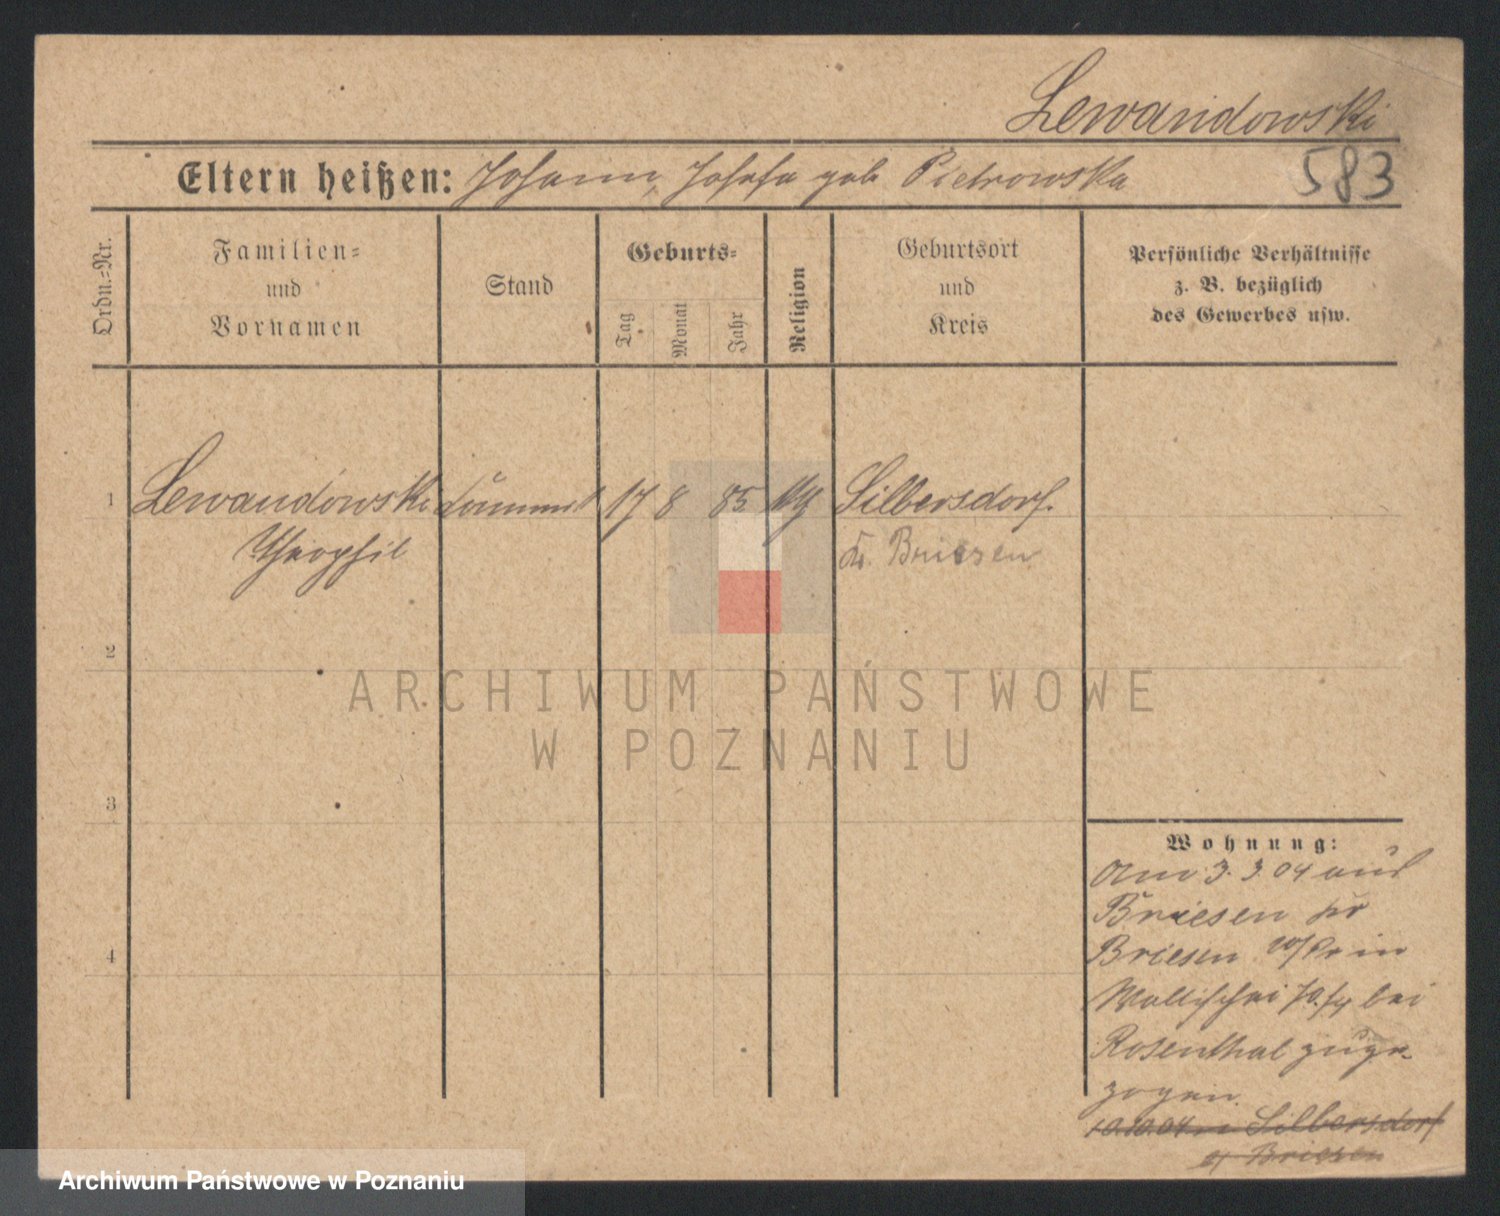 Lewandowski
Eltern heißen: Johann, Josefa geb Pietrowska
583
Ordn.=Nr.
Familien=
und
Vornamen
Stand
Geburts=
Tag
Monat
Jahr
Religion
Geburtsort
und
Kreis
Persönliche Verhältnisse
z. B. bezüglich
des Gewerbes usw.
1
Lewandowski
Theophil
17 8 85
Silbersdorf.
Kr. Briesen
2
3
4
ARCHIWUM PAŃSTWOWE
W POZNANIU
Wohnung:
Am 3. 3. 04 aus
Briesen Kr
Briesen W/Pr in
Wallischei bei
Rosenthal zuge
zogen.
10.10.04 Silbersdorf
Briesen
Archiwum Państwowe w Poznaniu